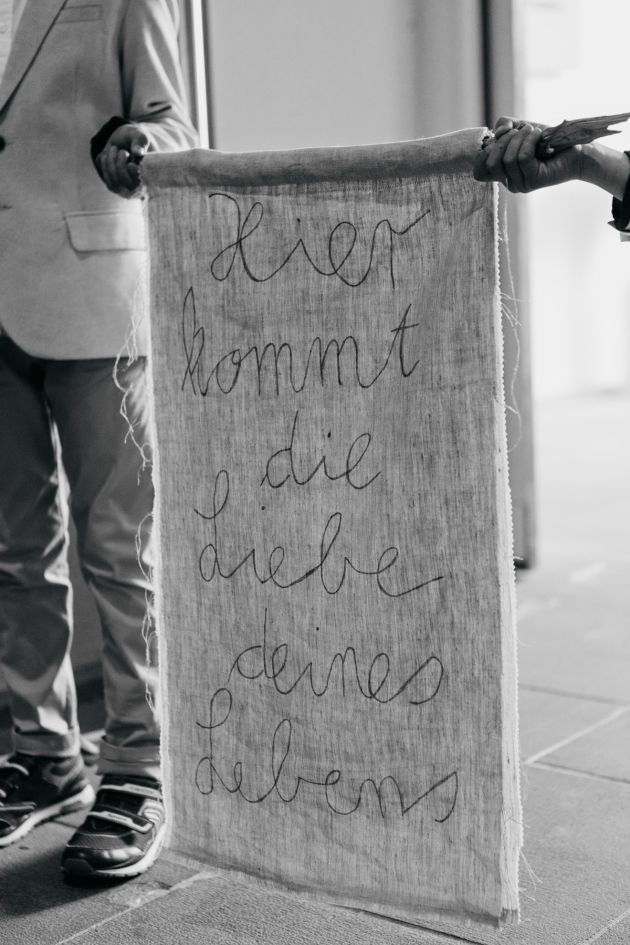 Hier
kommt
die
Liebe
deines
Lebens